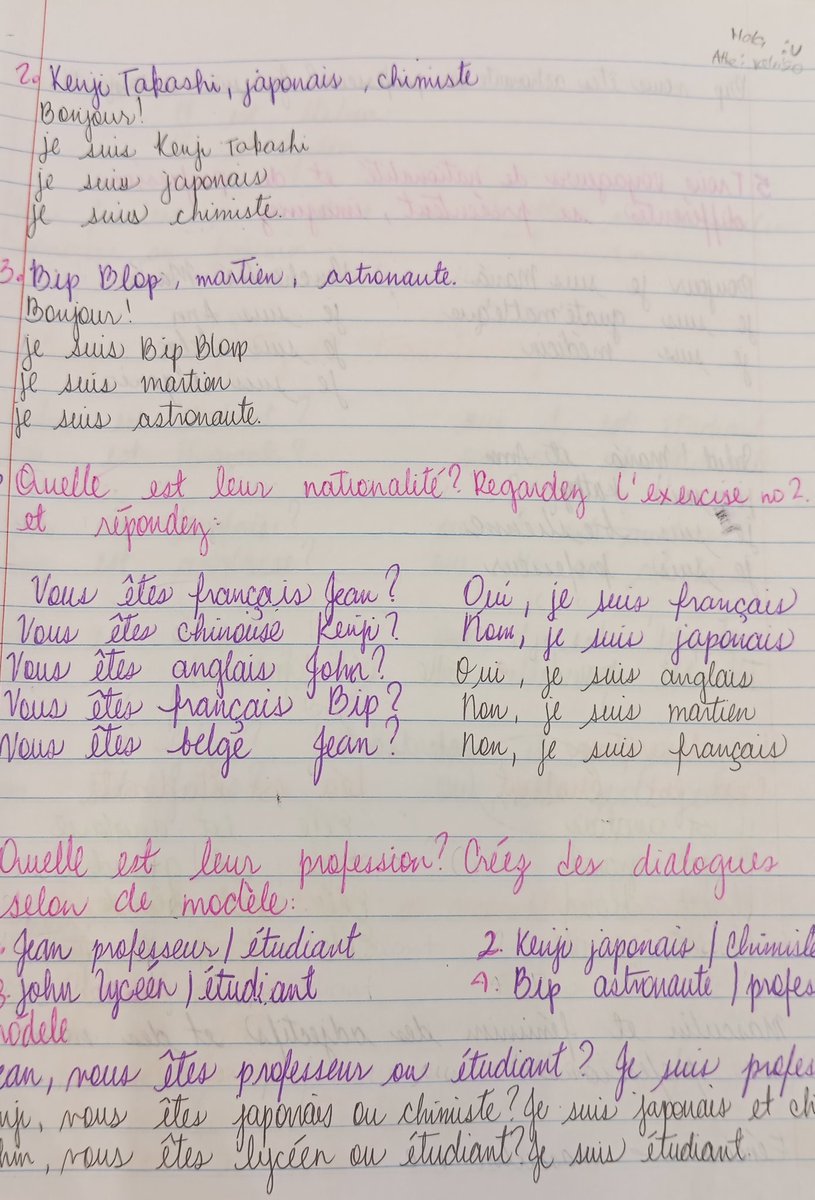 2. Kenji Takashi, japonais, chimiste
Bonjour!
je suis Kenji Takashi
je suis japonais
je suis chimiste.
3. Bip Blop, martien, astronaute.
Bonjour!
je suis Bip Blop
je suis martien
je suis astronaute.
Quelle est leur nationalité? Regardez l'exercise no 2.
et répondez:
Vous êtes français Jean? Oui, je suis français
Vous êtes chinousé Kenji? Non, je suis japonais
Vous êtes anglais John? Oui, je suis anglais
Vous êtes français Bip? Non, je suis martien
Vous êtes belge Jean? Non, je suis français
Quelle est leur profession? Créez des dialogues
selon de modèle:
Jean professeur / étudiant 2. Kenji japonais / chimiste
3. John lycéén / étudiant 4. Bip astronaute / profes
modèle
ean, vous êtes professeur ou étudiant? Je suis profes
nji, vous êtes japonais ou chimiste? Je suis japonais et chi
hn, vous êtes lycéen ou étudiant? Je suis étudiant.